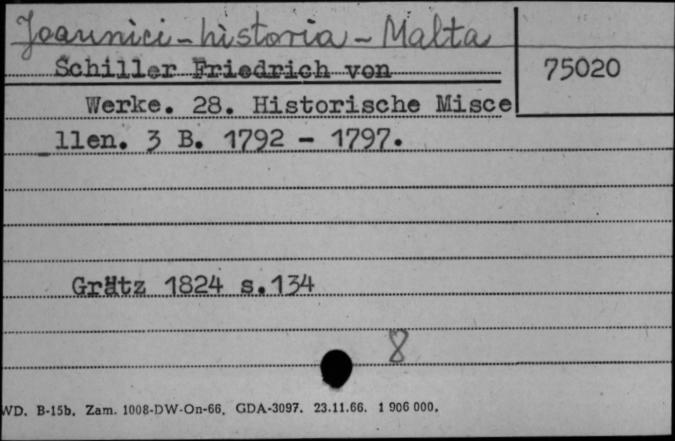 Joannici - historia - Malta
Schiller Friedrich von
75020
Werke. 28. Historische Misce
llen. 3 B. 1792 - 1797.
Grätz 1824 s.134
8
WD. B-15b. Zam. 1008-DW-On-66. GDA-3097. 23.11.66. 1 906 000.